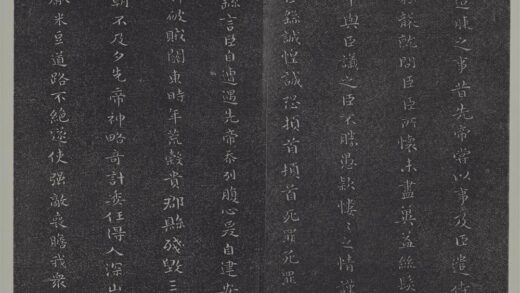 之事昔先帝嘗以事及臣遣侍
粲就問臣臣所懷未盡奚益絲髮
中與臣議之臣不勝愚款慺〻之情謹
臣繇誠惶誠恐頓首頓首死罪死罪
繇言臣自遭遇先帝忝列腹心爰自建安
師破賊關東時年荒穀貴郡縣殘毀三
朝不及夕先帝神略奇計委任得人深山
獻米豆道路不絕遂使强敵喪膽我眾